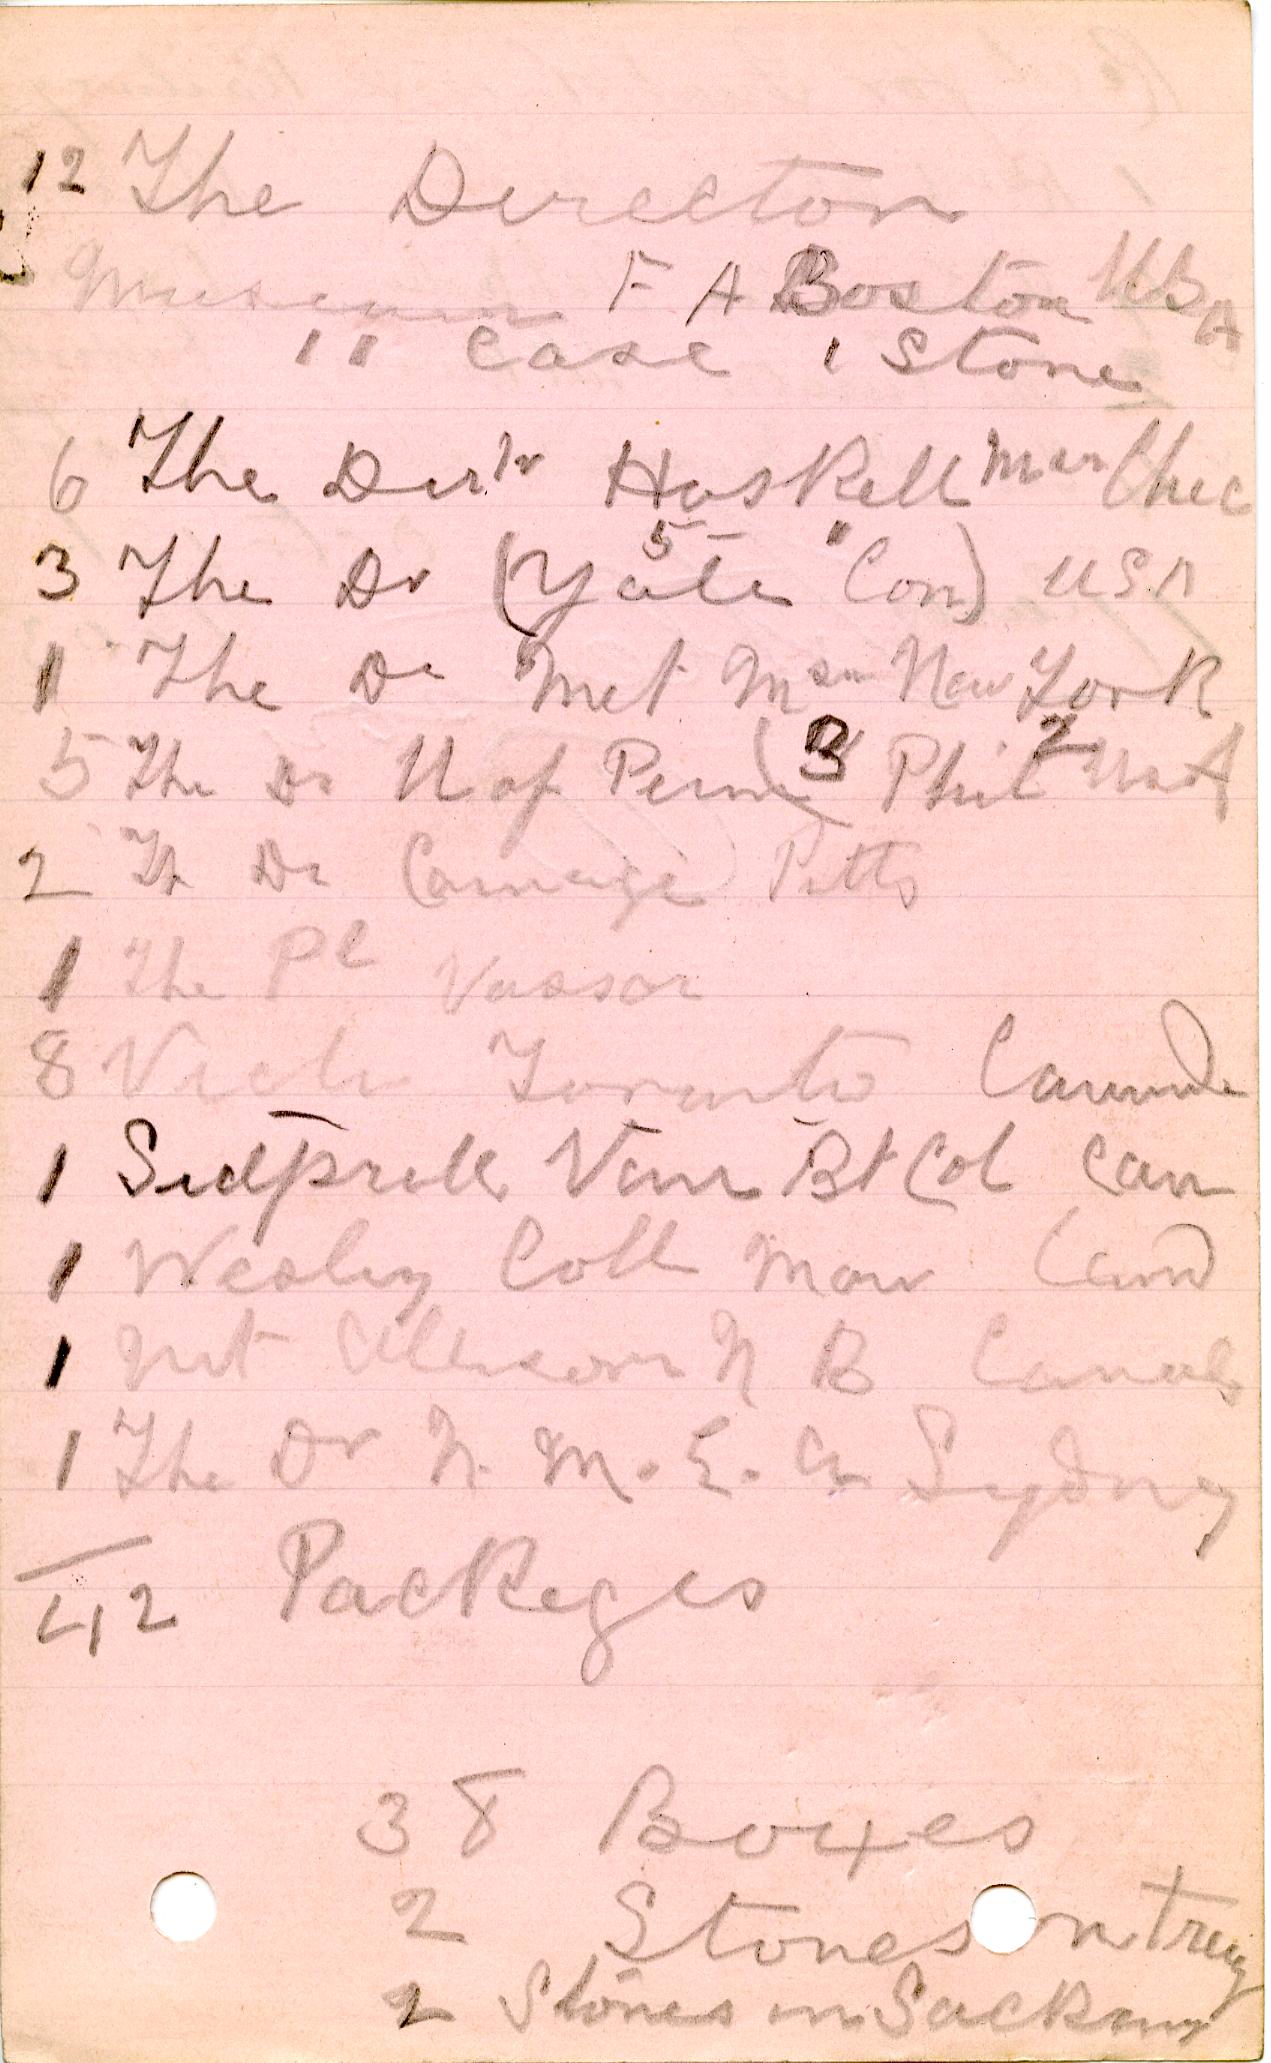 12 The Director
Museum F A Boston USA
11 case 1 Stone
6 The Dirtr Haskell Msm Chic
5 "
3 The Dr (Yale Con) USA
1 The Dr Met Msm New York
3 2
5 The Dr U of Penn Phil USA
2 Th Dr Carnage Pitts
1 The Pl Vassar
8 Vict Toronto Canada
1 Van Bt Col Can
1 Wesley Coll Man Can
1 Mt Allison N B Canada
1 The Dr N. M. E. A Sydney
42 Packeges
38 Boxes
2 Stones on Tray
2 Stones in Sacking